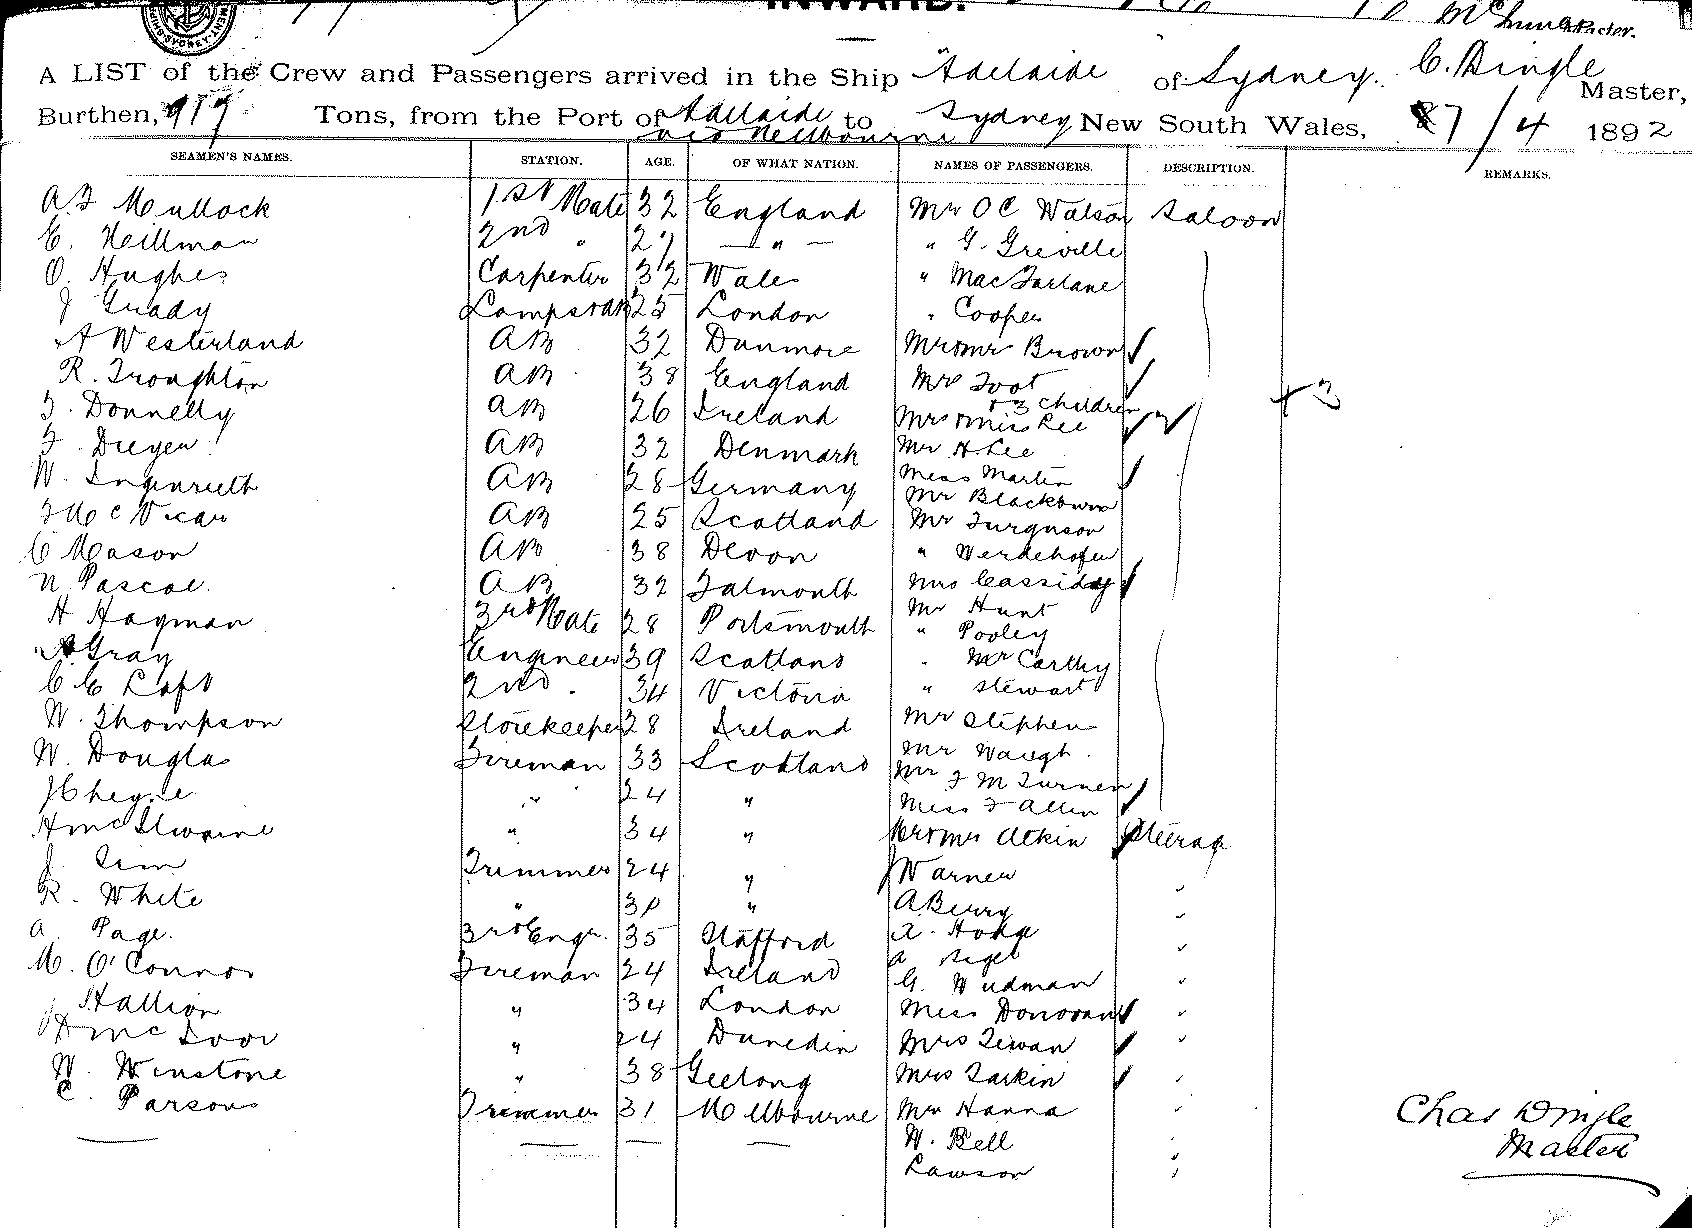 INWARD.
A LIST of the Crew and Passengers arrived in the Ship Adelaide of Sydney. C. Dingle Master,
Burthen, 919 Tons, from the Port of Adelaide to Sydney New South Wales, 27/4 1892
via Melbourne
SEAMEN'S NAMES. STATION. AGE. OF WHAT NATION. NAMES OF PASSENGERS. DESCRIPTION. REMARKS.
Mullock 1st Mate 32 England Mr O C Watson Saloon
E. Hillman 2nd " 27 — " — " G. Greville
O. Hughes Carpenter 32 Wales " MacFarlane
J Grady Lamps 25 London " Cooper
A Westerland AB 32 Dunmore Mr & Mrs Brown
R. Troughton AB 38 England Mrs Foot
& 3 children
+ 3
F. Donnelly AB 26 Ireland Mrs & Miss Lee
F. Dreyer AB 32 Denmark Mr H Lee
W. AB 28 Germany Miss Martin
Mr Blackburn
McVicar AB 25 Scotland Mr Furguson
C Mason AB 38 Devon "
N Pascoe. AB 32 Falmouth Mrs Cassidy
H Hayman 3rd Mate 28 Portsmouth Mr Hunt
" Pooley
Gray Engineer 39 Scotland " McCarthy
C E 2nd " 34 Victoria " Stewart
W. Thompson Storekeeper 28 Ireland Mr Stephen
W. Douglas Fireman 33 Scotland Mr Waugh
Mr F M Turner
J Cheyne " 24 " Miss F Allen
H McIlwaine " 34 " Mr & Mrs Atkin Steerage
J. Sim Trimmer 24 " J Warner
R. White " 30 " A Berry
A. Page. 3rd Engr. 35 Stafford A. Hogg
M. O'Connor Fireman 24 Ireland A
G. Wudman
Hallion " 34 London Miss Donovan
H Mc " 24 Dunedin Mrs
W. Winstone " 38 Geelong Mrs Larkin
C. Parsons Trimmer 31 Melbourne Mr Hanna
W. Bell
Lawson
Chas Dingle
Master